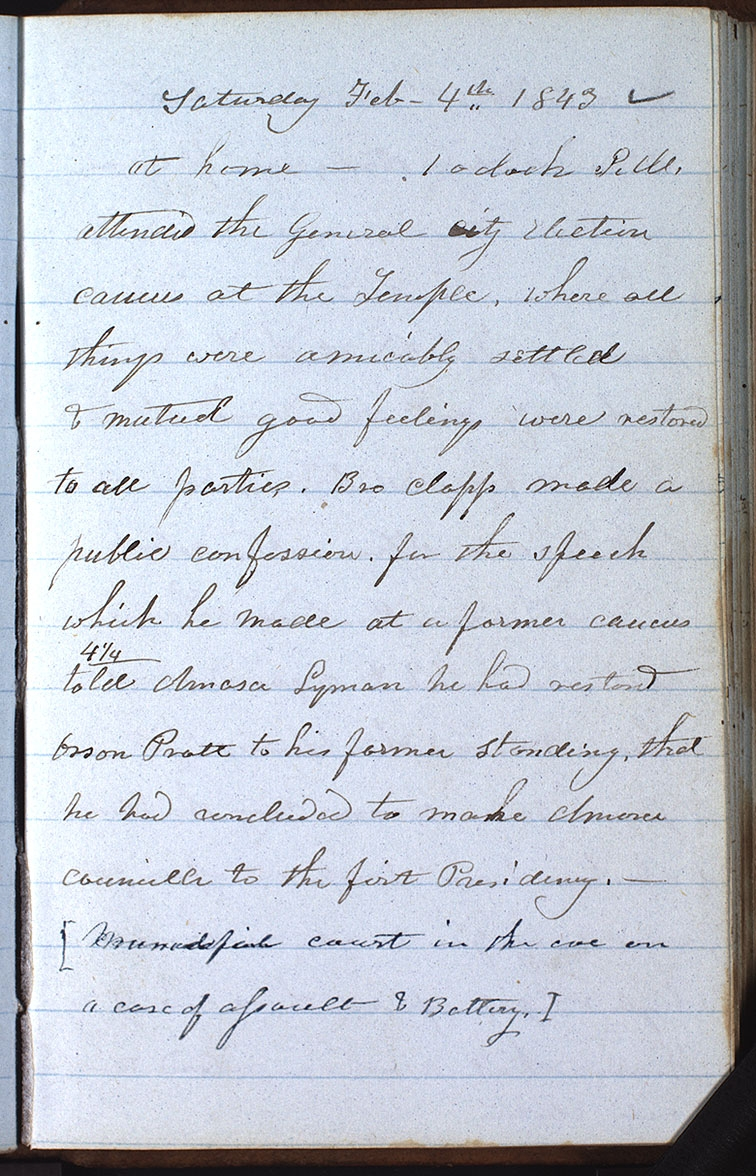 Saturday Feb- 4th 1843 ✓
at home — . 1 oclock P.M.
attended the General city Election
caucus at the Temple, where all
things were amicably settled
& mutual good feelings were restored
to all parties. Bro clapp made a
public confession. for the speech
which he made at a former caucus
4 1/4
told Amasa Lyman he had restord
Orson Pratt to his former standing, that
he had concluded to make Amasa
councillr to the first Presidency. —
[ Municipal court in the eve on
a case of assault & Battery. ]